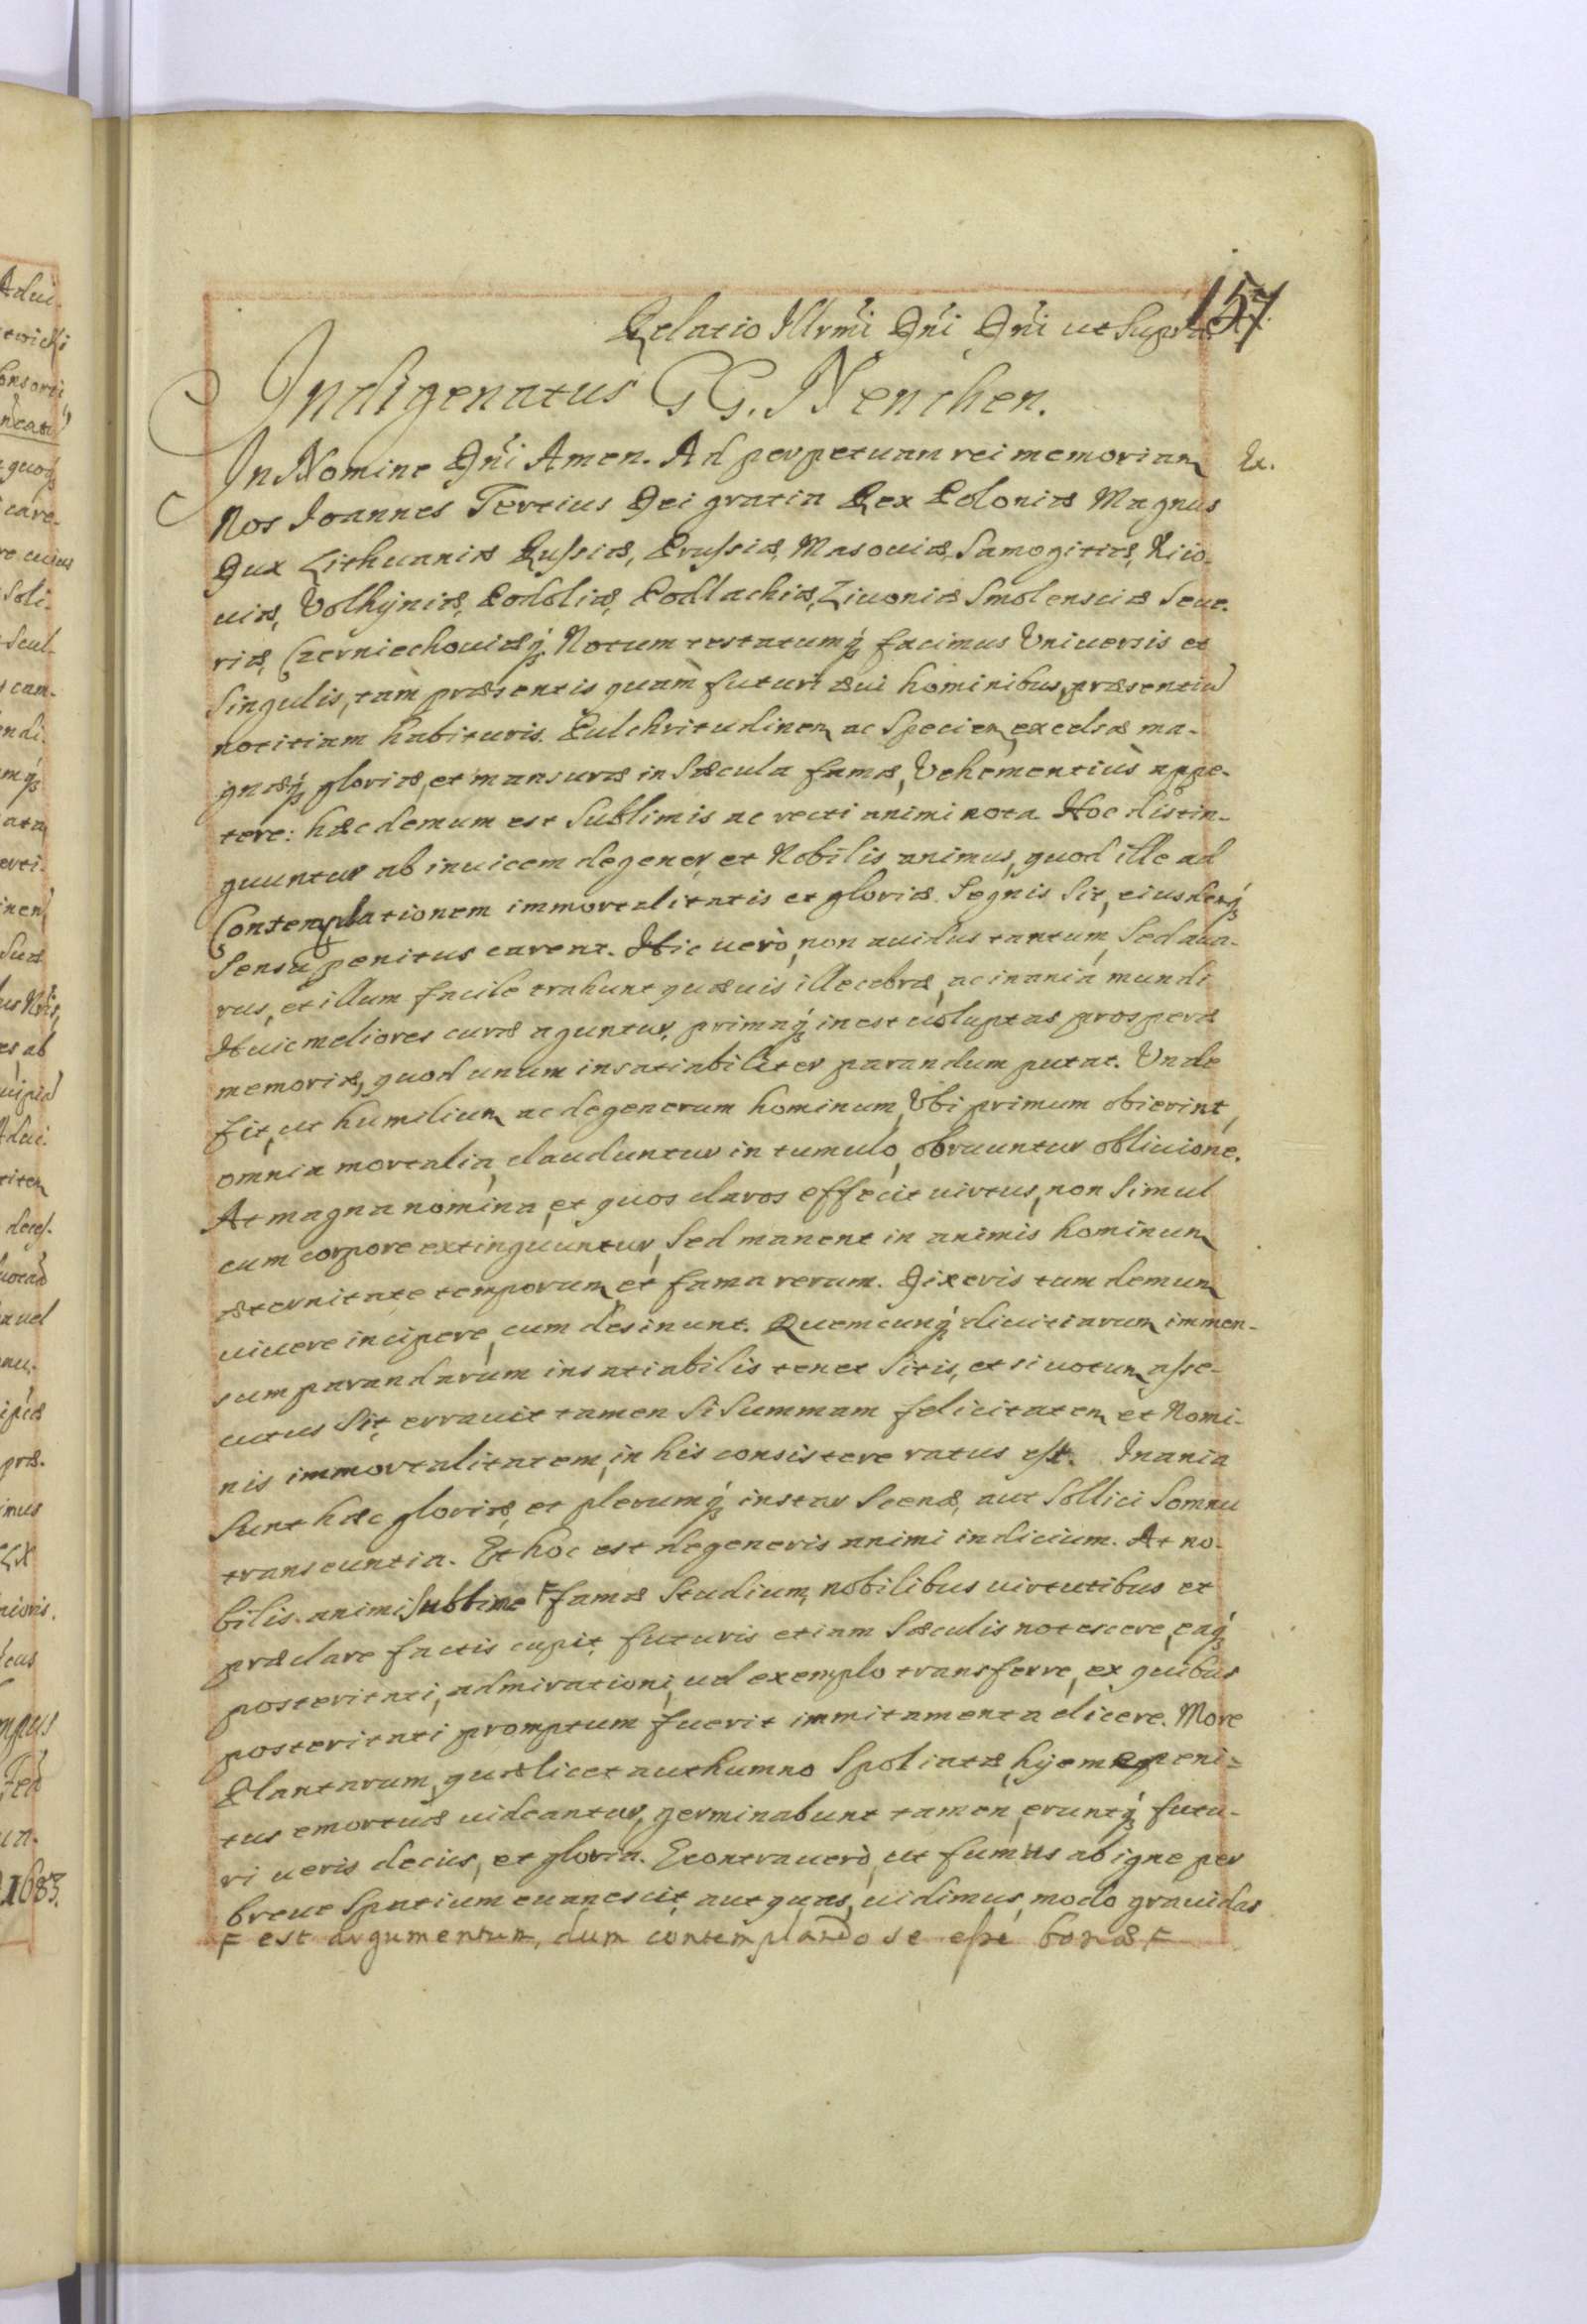 157
Relatio Illrmi Dni Dni ut Supra
Indigenatus GG. Nenchen.
In Nomine Dni Amen. Ad perpetuam rei memoriam &c.
Nos Joannes Tertius Dei gratia Rex Poloniæ Magnus
Dux Lithuaniæ Russiæ, Prussiæ, Masouiæ, Samogitiæ, Kiio-
uiæ, Volhÿniæ, Podoliæ, Podlachiæ, Liuoniæ Smolensciæ Seue-
riæ, Czerniechouiæq́ Notum testatumq́ facimus Vniuersis et
Singulis, tam præsentis quàm futuri æui hominibus, præsentiū
notitiam habituris. Pulchritudinem ac Speciem excelsæ ma-
gnæq́ gloriæ, et mansuræ in Sæcula famæ, Vehementiùs appe-
tere: hæc demum est Sublimis ac recti animi nota. Hoc distin-
guuntur ab inuicem degener, et Nobilis animus, quod ille ad
Contemplationem immortalitatis et gloriæ Segnis Sit, eiusdemq́
Sensu penitus carent. Hic uerò, non auidus tantum, Sed aua-
rus, et illum facile trahunt quæuis illecebræ, ac inania mundi
Huic meliores curæ aguntur, primaq́ inest uoluptas prosperæ
memoriæ, quod unum insatiabiliter parandum putat. Vnde
fit, ut humilium ac degenerum hominum, Vbi primum obierint,
omnia mortalia, clauduntur in tumulo, obruuntur obliuione.
At magna nomina, et quos claros effecit uirtus, non Simul
cum corpore extinguuntur, Sed manent in animis hominum
æternitate temporum, et fama rerum. Dixeris tum demum
uiuere incipere, cum desinunt. Quemcunq́ diuitiarum immen-
sum parandarum insatiabilis tenet Sitis, et si uotum asse-
cutus Sit, errauit tamen Si Summam felicitatem et Nomi-
nis immortalitatem, in his consistere ratus est. Inania
Sunt hæc gloriæ, et plerumq́ instar Scenæ, aut Sollici Somnu
transeuntia. Et hoc est degeneris animi indicium. At no-
bilis animi Sublime F famæ Studium, nobilibus uirtutibus et
præclare factis cupit, futuris etiam Sæculis notescere, eaq́
posteritati, admirationi, uel exemplo transferre, ex quibus
posteritati promptum fuerit immitamenta elicere. More
Plantarum, quæ licet authumno Spoliatæ, hÿemeq peni-
tus emortuæ uideantur, germinabunt tamen, eruntq́ futu-
ri ueris decus, et gloria. Econtra uerò, ut fumus ab igne per
breue Spatium euanescit, aut quas, uidimus, modo grauidas
F est argumentum, dum contemplando se esse bonæ F